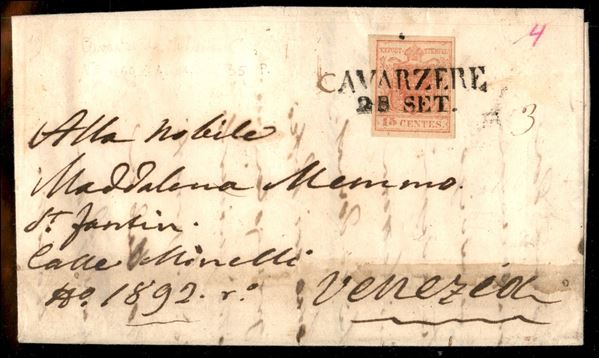 4
KPOST-STEMPEL
CAVARZERE
28 SET.
15 CENTES.
3
Alla Nobile
Maddalena Memmo.
St. Fantin.
Calle Minelli
No. 1892. r.o
Venezia